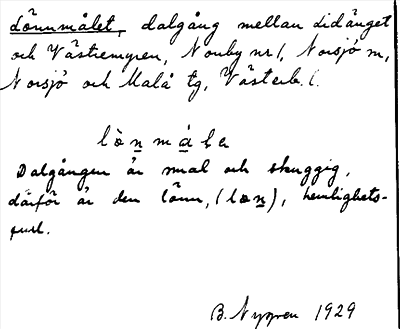 Lönnmålet, dalgång mellan Lidänget
och Västremyren, Norrby nr 1, Norsjö sn,
Norsjö och Malå tg, Västerb. l.
lònmála
Dalgången är smal och skuggig,
därför är den lönn, (lon), hemlighets-
full.
B. Nygren 1929